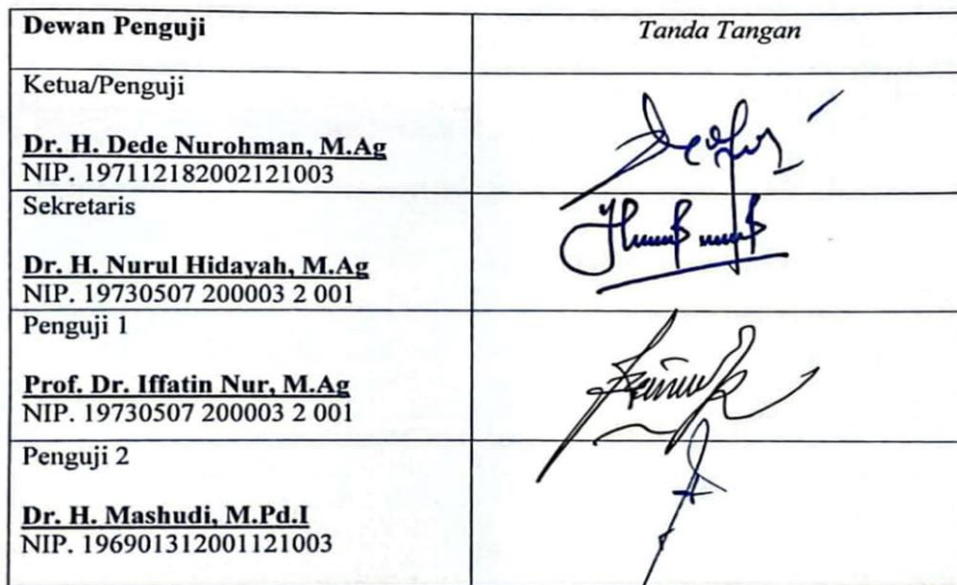 Dewan Penguji
Tanda Tangan
Ketua/Penguji
Dr. H. Dede Nurohman, M.Ag
NIP. 197112182002121003
Sekretaris
Dr. H. Nurul Hidayah, M.Ag
NIP. 19730507 200003 2 001
Penguji 1
Prof. Dr. Iffatin Nur, M.Ag
NIP. 19730507 200003 2 001
Penguji 2
Dr. H. Mashudi, M.Pd.I
NIP. 196901312001121003